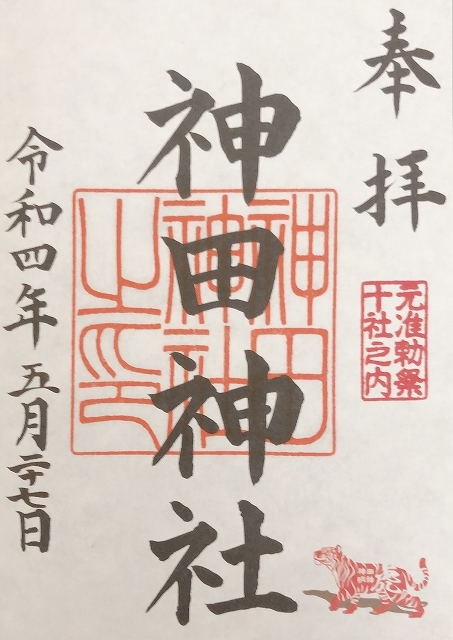 奉拝
元准勅祭
十社之内
神田神社
神田
神社
之印
令和四年五月二十七日